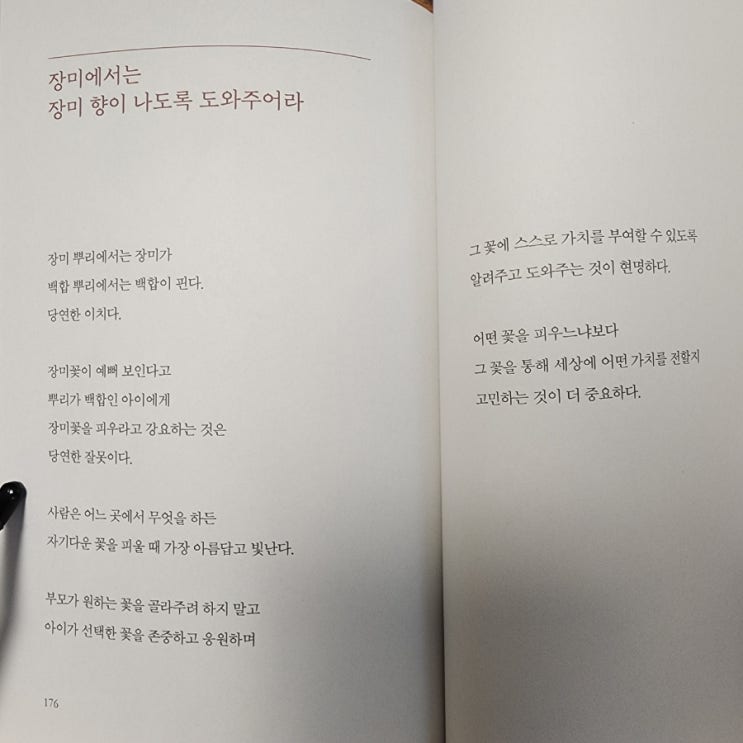 장미에서는
장미 향이 나도록 도와주어라
장미 뿌리에서는 장미가
백합 뿌리에서는 백합이 핀다.
당연한 이치다.
장미꽃이 예뻐 보인다고
뿌리가 백합인 아이에게
장미꽃을 피우라고 강요하는 것은
당연한 잘못이다.
사람은 어느 곳에서 무엇을 하든
자기다운 꽃을 피울 때 가장 아름답고 빛난다.
부모가 원하는 꽃을 골라주려 하지 말고
아이가 선택한 꽃을 존중하고 응원하며
176
그 꽃에 스스로 가치를 부여할 수 있도록
알려주고 도와주는 것이 현명하다.
어떤 꽃을 피우느냐보다
그 꽃을 통해 세상에 어떤 가치를 전할지
고민하는 것이 더 중요하다.